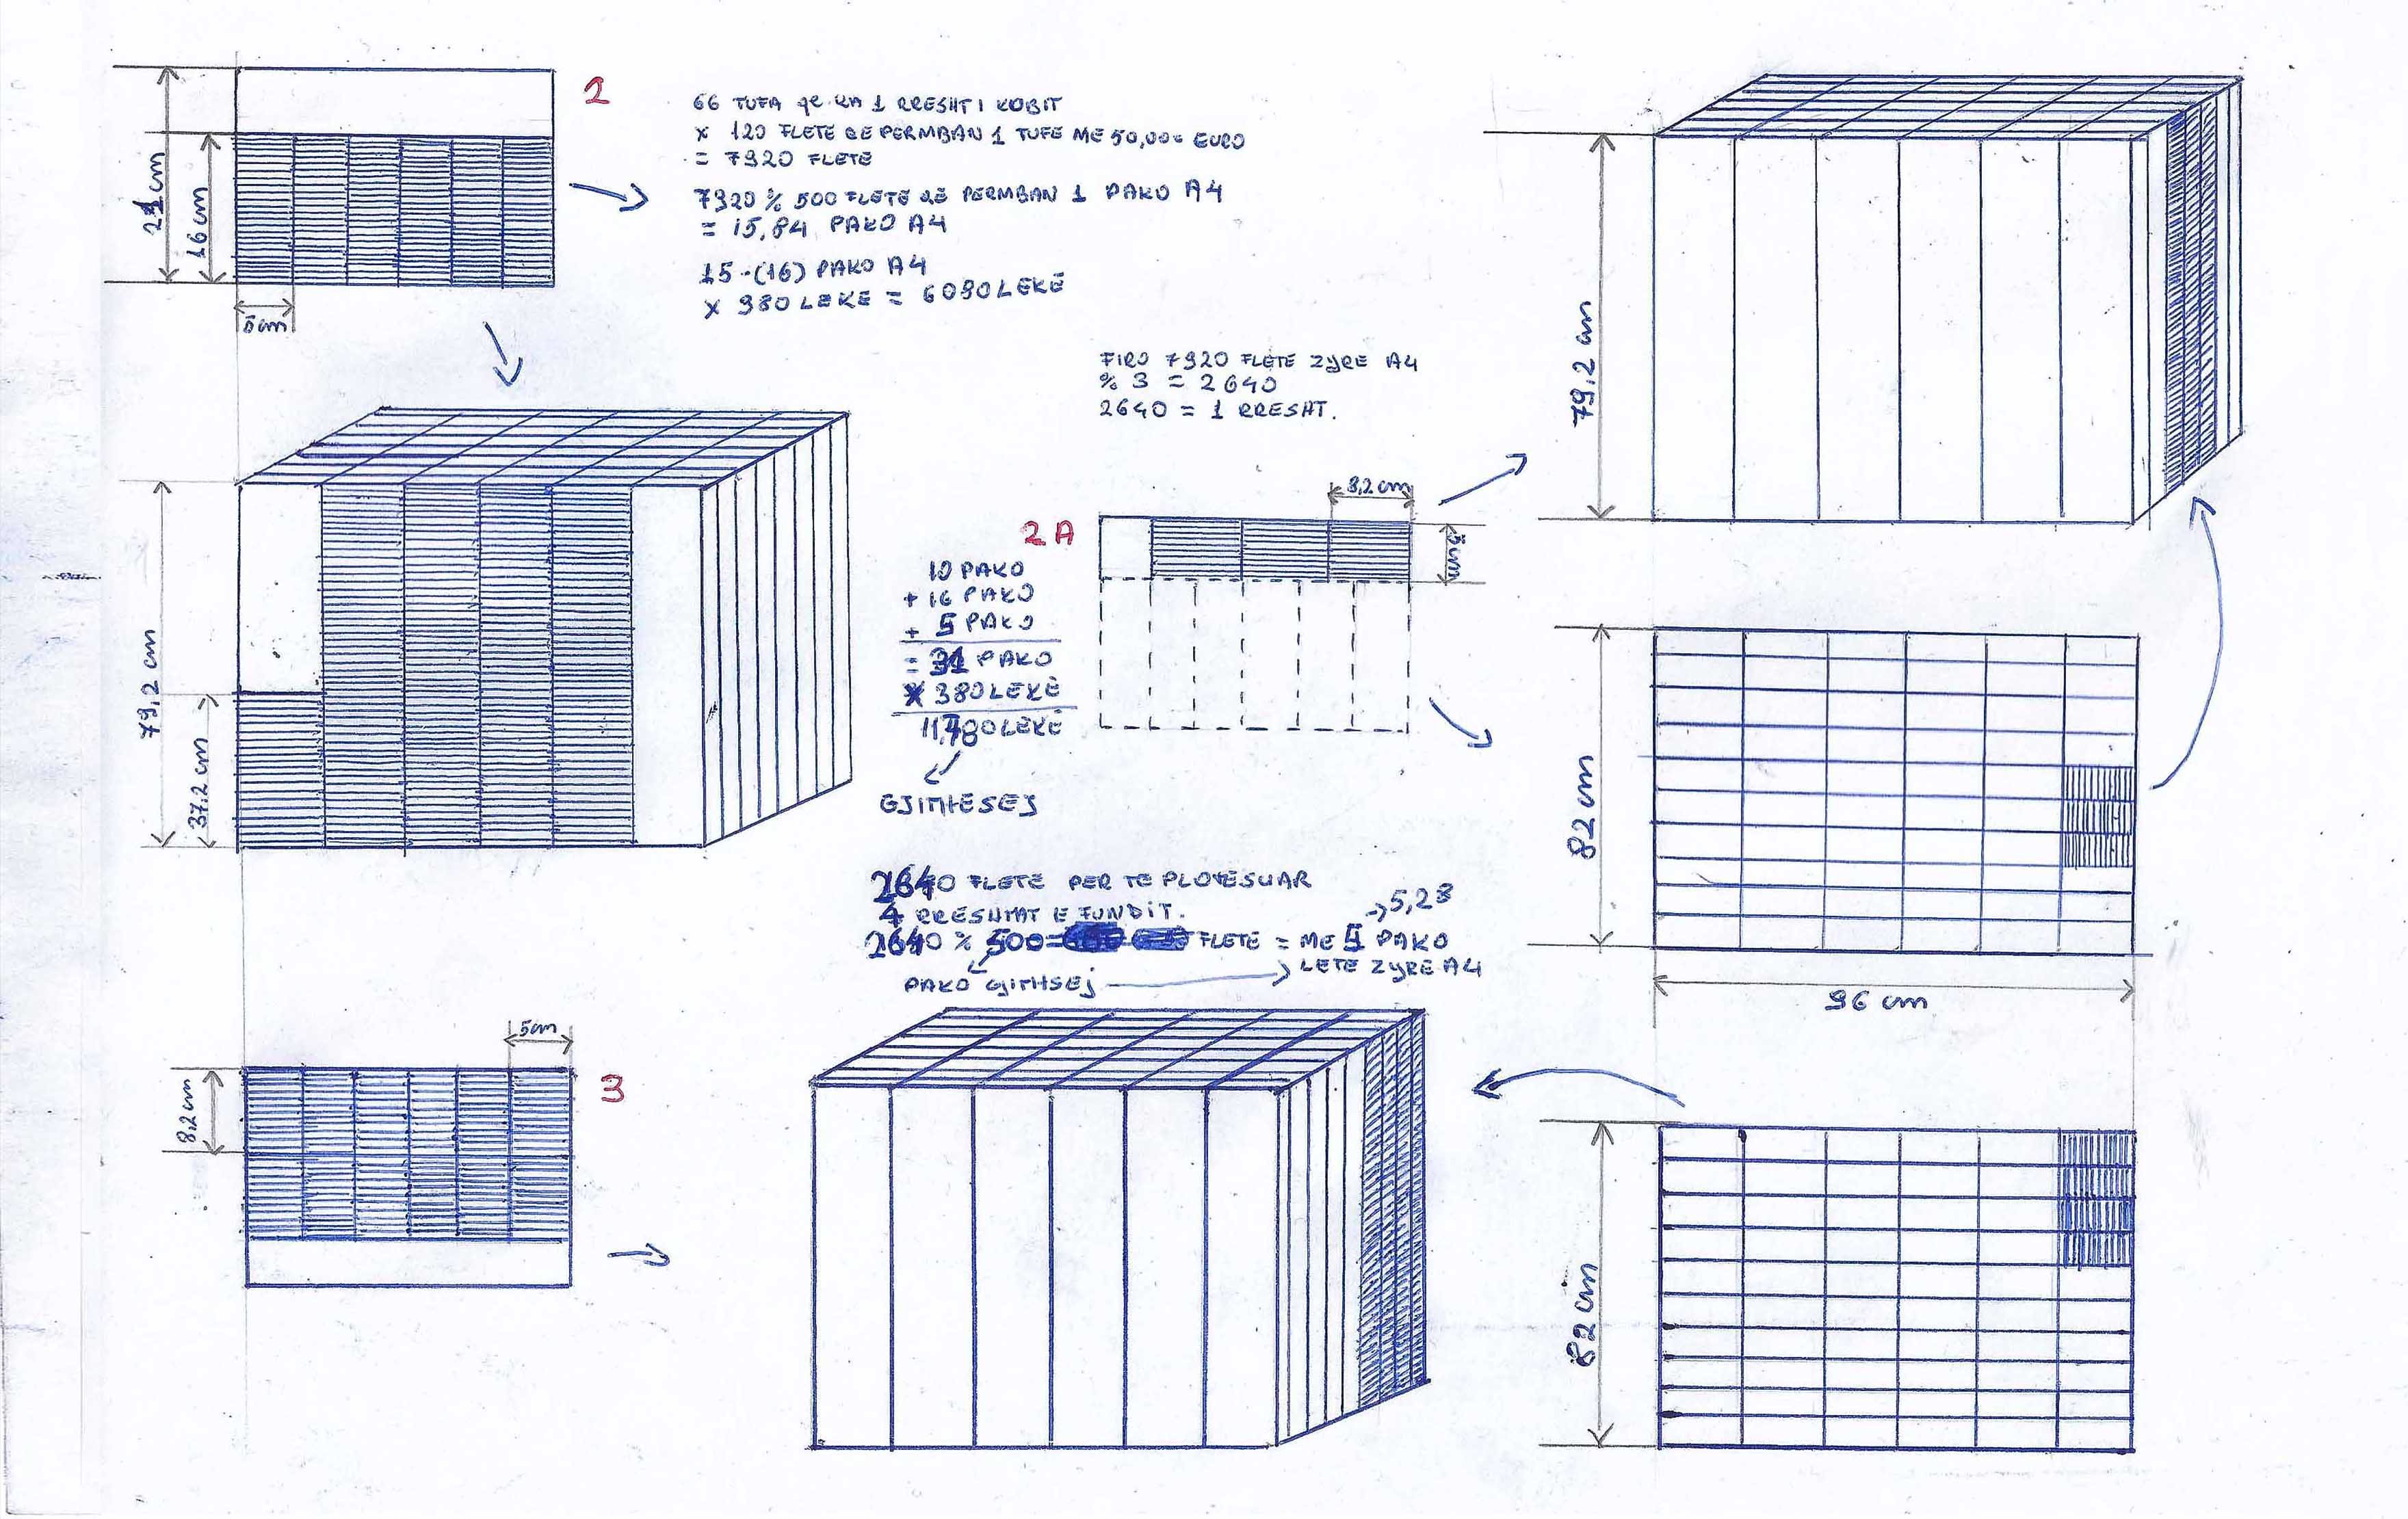 2
21 cm
16 cm
5 cm
66 TUFA qe KA 1 RRESHT I KUBIT
x 120 FLETE QE PERMBAN 1 TUFE ME 50,000 EURO
= 7920 FLETE
7920 % 500 FLETE QE PERMBAN 1 PAKO A4
= 15,84 PAKO A4
15-(16) PAKO A4
x 380 LEKE = 6080 LEKË
79,2 cm
37,2 cm
FIRO 7920 FLETE ZYRE A4
% 3 = 2640
2640 = 1 RRESHT.
2A
8,2 cm
5 cm
10 PAKO
+ 16 PAKO
+ 5 PAKO
= 31 PAKO
X 380 LEKË
11,780 LEKË
GJITHESEJ
79,2 cm
82 cm
96 cm
2640 FLETE PER TE PLOTESUAR
4 RRESHTAT E FUNDIT.
→ 5,28
2640 % 500 = FLETE = ME 5 PAKO
LETE ZYRE A4
PAKO GJITHSEJ
5cm
8,2 cm
3
82 cm